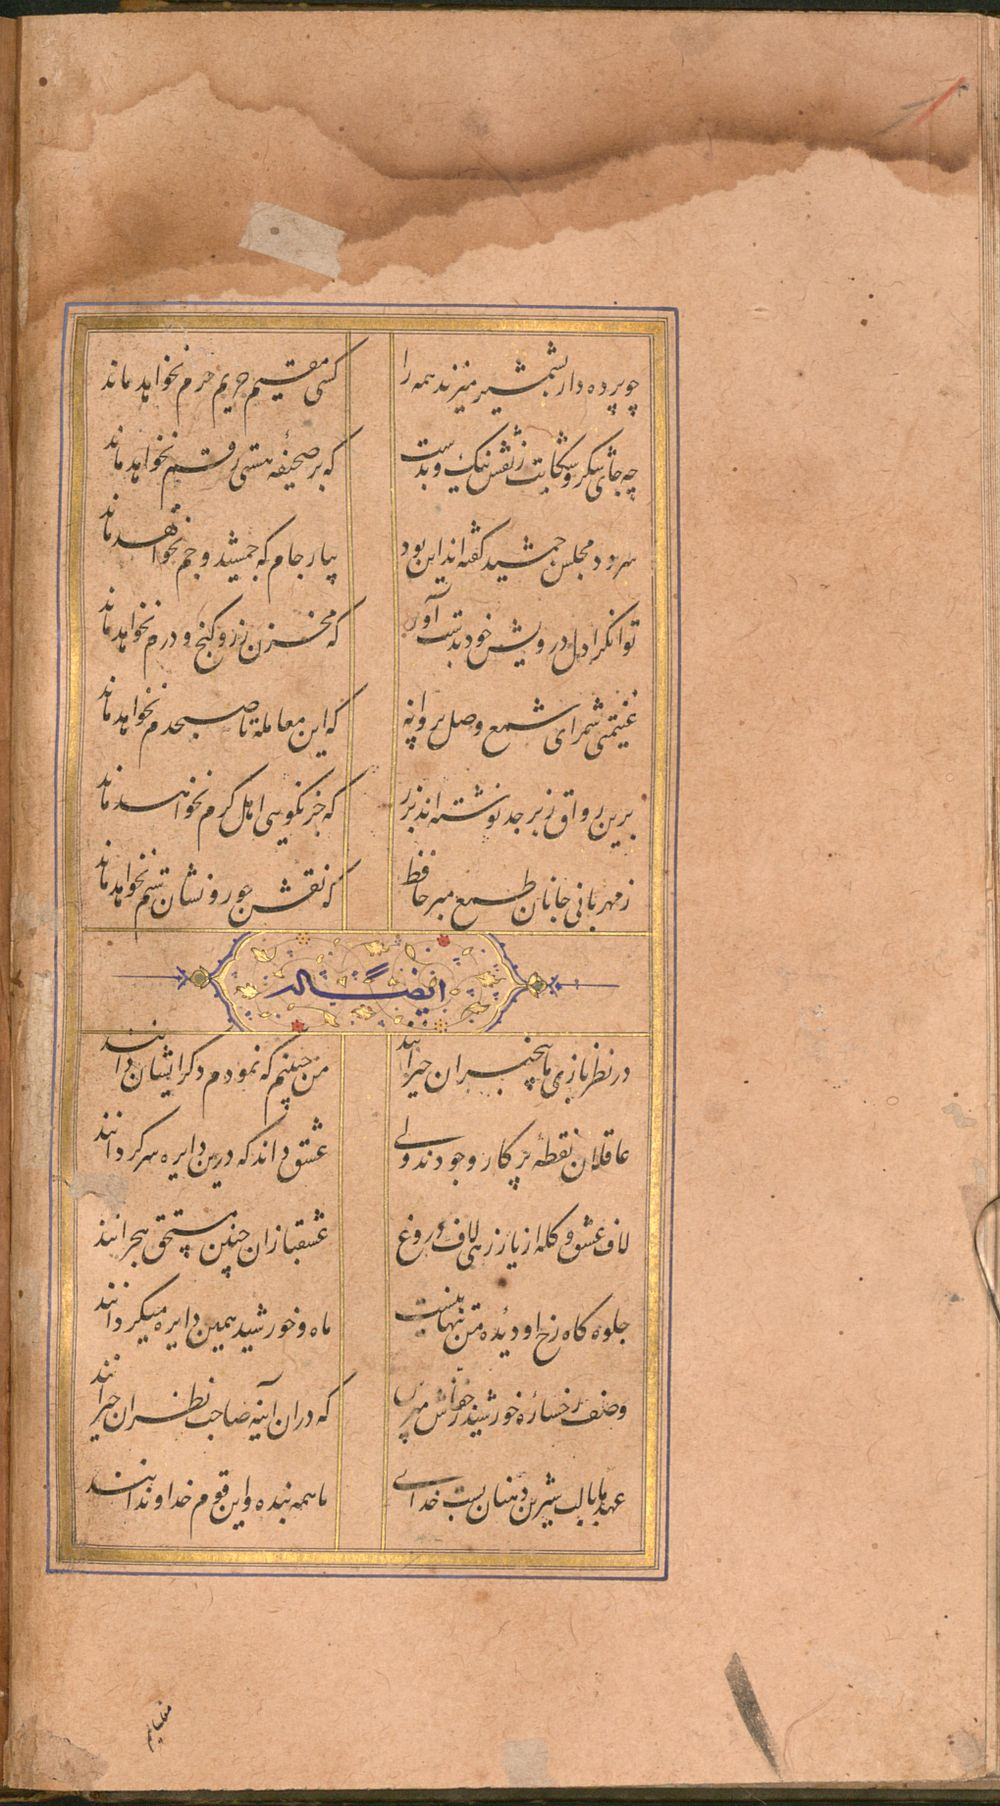 چو پرده دار بشمشیر میزند همه را کسی مقیم حریم حرم نخواهد ماند
چه جای شکر و شکایت ز نقش نیک و بدست که بر صحیفه هستی رقم نخواهد ماند
سرود مجلس جمشید گفته‌اند این بود بیار جام که جمشید و جم نخواهد ماند
توانکرا دل درویش خود بدست آور که مخزن زر و کنج و درم نخواهد ماند
غنیمتی شمر ای شمع وصل پروانه که این معامله تا صبحدم نخواهد ماند
برین رواق زبرجد نوشته‌اند بزر که جز نکویی اهل کرم نخواهد ماند
ز مهربانی جانان طمع مبر حافظ که نقش جور و نشان ستم نخواهد ماند
ایضا له
در نظربازی ما بیخبران حیرانند من چنینم که نمودم دکر ایشان دانند
عاقلان نقطهٔ پرکار وجودند ولی عشق داند که درین دایره سرکردانند
لاف عشق و کله از یار زهی لاف دروغ عشقبازان چنین مستحق هجرانند
جلوه کاه رخ او دیدهٔ من تنها نیست ماه و خورشید همین دایره میکردانند
وصف رخسارهٔ خورشید ز خفاش مپرس که دران آینه صاحب نظران حیرانند
عهد ما با لب شیرین دهنان بست خدای ما همه بنده و این قوم خداوندانند
مفلسانیم